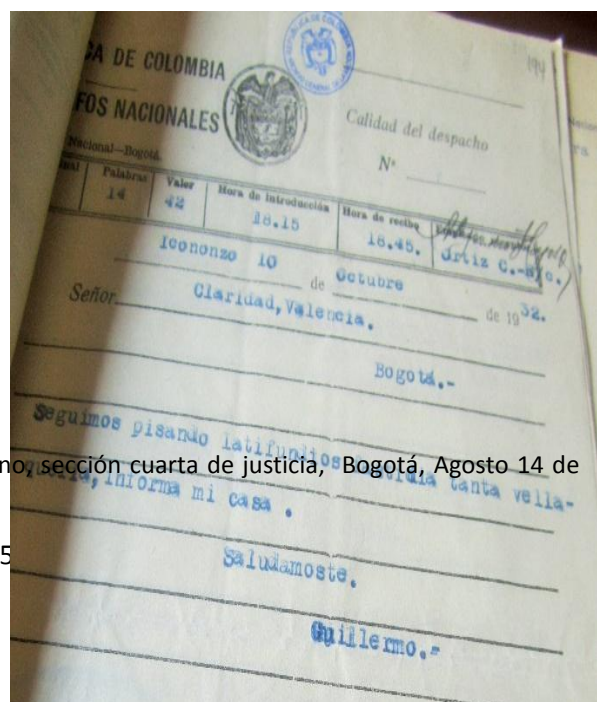 194
CA DE COLOMBIA
FOS NACIONALES
Calidad del despacho
Nº
Nacional—Bogotá.
Palabras Valor Hora de introducción Hora de recibo
14 42 18.15 18.45. Ortiz C.-
Icononzo 10 de Octubre de 1932.
Señor Claridad, Valencia.
Bogotá.-
Seguimos pisando latifundios tanta vella-
no, sección cuarta de justicia, Bogotá, Agosto 14 de
informa mi casa .
5
Saludamoste.
Guillermo.-